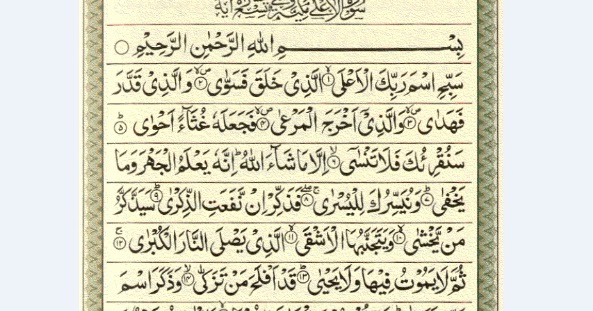 سورة الاعلى مكية وهي تسع عشرة اية
بِسْمِ اللهِ الرَّحْمٰنِ الرَّحِيْمِ ○
سَبِّحِ اسْمَ رَبِّكَ الْاَعْلَى ۙ﴿۱﴾ الَّذِیْ خَلَقَ فَسَوّٰی ۪ۙ﴿۲﴾ وَالَّذِیْ قَدَّرَ
فَهَدٰی ۪ۙ﴿۳﴾ وَالَّذِیْۤ اَخْرَجَ الْمَرْعٰی ۪ۙ﴿۴﴾ فَجَعَلَهٗ غُثَآءً اَحْوٰی ﴿۵﴾
سَنُقْرِئُكَ فَلَا تَنْسٰۤی ۙ﴿۶﴾ اِلَّا مَا شَآءَ اللهُ ؕ اِنَّهٗ یَعْلَمُ الْجَهْرَ وَمَا
یَخْفٰی ﴿۷﴾ وَنُیَسِّرُكَ لِلْیُسْرٰی ﴿۸﴾ فَذَكِّرْ اِنْ نَّفَعَتِ الذِّكْرٰی ﴿۹﴾ سَیَذَّكَّرُ
مَنْ یَّخْشٰی ﴿۱۰﴾ وَیَتَجَنَّبُهَا الْاَشْقَی ﴿۱۱﴾ الَّذِیْ یَصْلَی النَّارَ الْكُبْرٰی ﴿۱۲﴾
ثُمَّ لَا یَمُوْتُ فِیْهَا وَلَا یَحْیٰی ﴿۱۳﴾ قَدْ اَفْلَحَ مَنْ تَزَكّٰی ﴿۱۴﴾ وَذَكَرَ اسْمَ